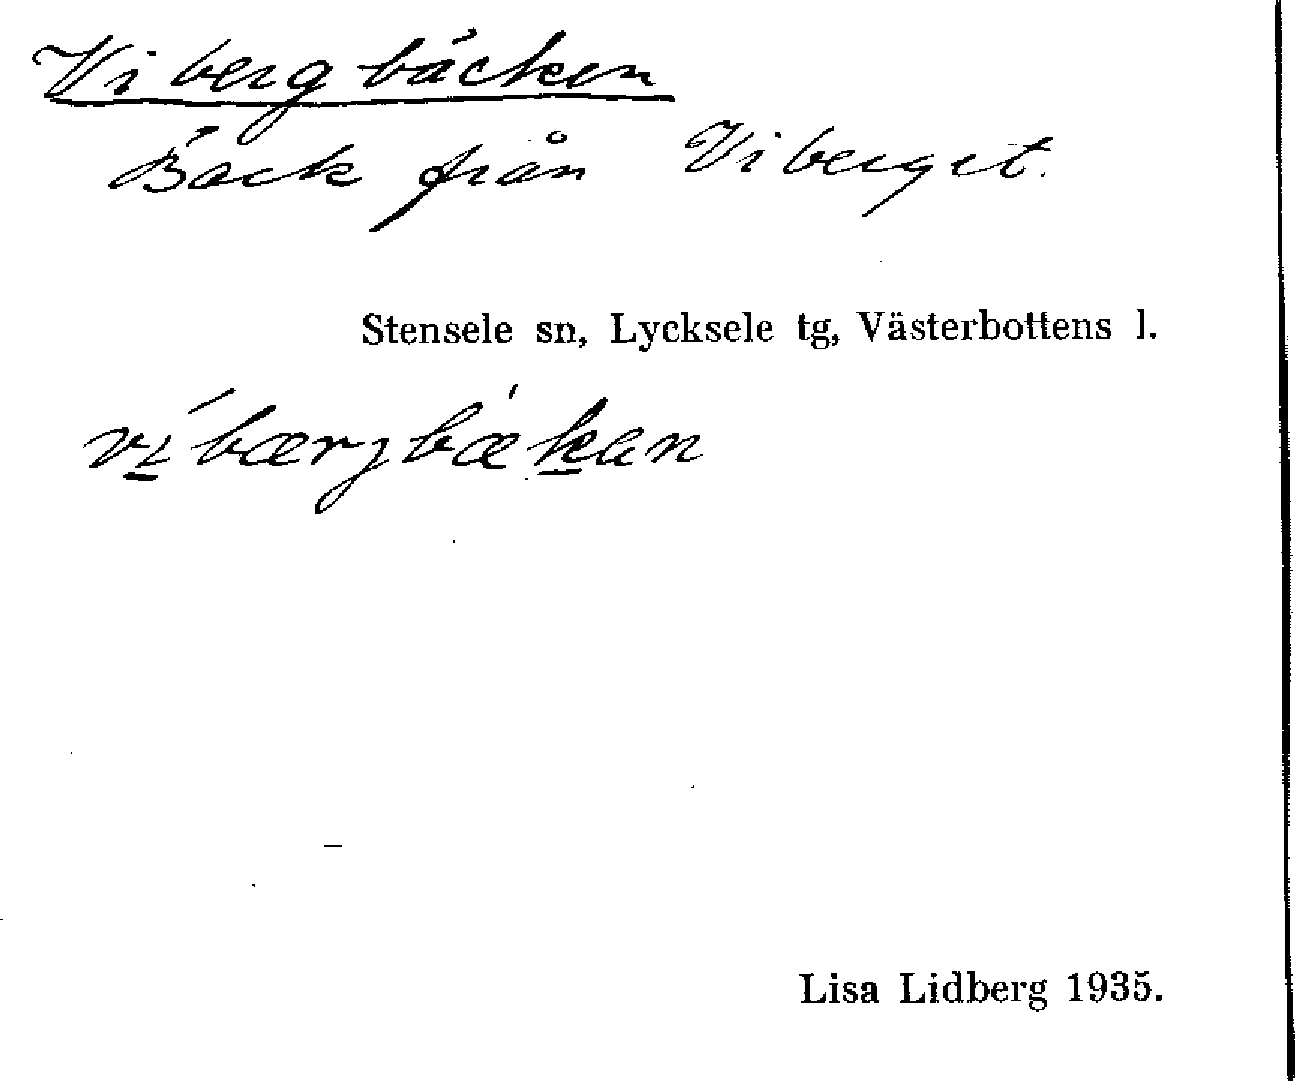 Vibergbäcken
Bäck från Viberget.
Stensele sn, Lycksele tg, Västerbottens l.
vi̠´bærjbæ'k̠an
Lisa Lidberg 1935.